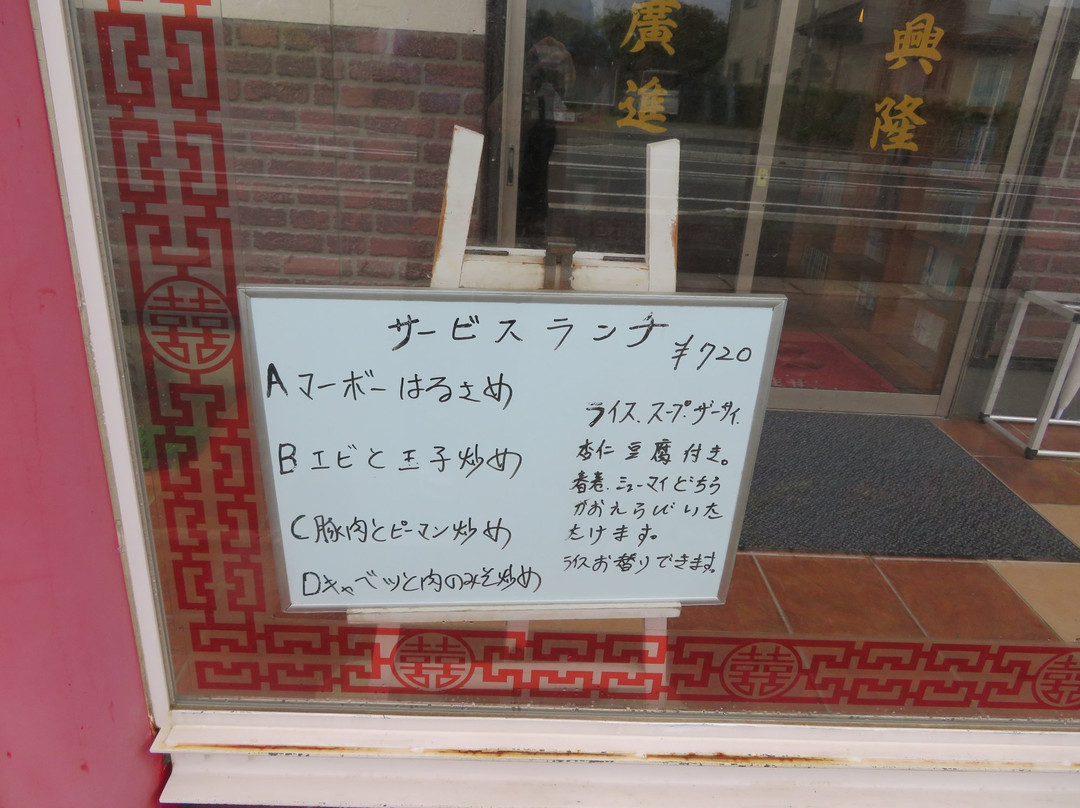 廣進
興隆
サービスランチ
¥720
A マーボーはるさめ
B エビと玉子炒め
C 豚肉とピーマン炒め
D キャベツと肉のみそ炒め
ライス.スープ.ザーサイ.
杏仁豆腐付き。
春巻.シューマイどちら
かおえらびいた
だけます。
ライスお替りできます。
囍
囍
囍
囍